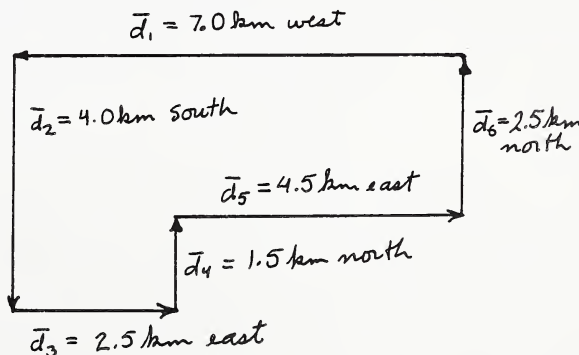 d̄₁ = 7.0 km west
d̄₂ = 4.0 km south
d̄₆ = 2.5 km
north
d̄₅ = 4.5 km east
d̄₄ = 1.5 km north
d̄₃ = 2.5 km east